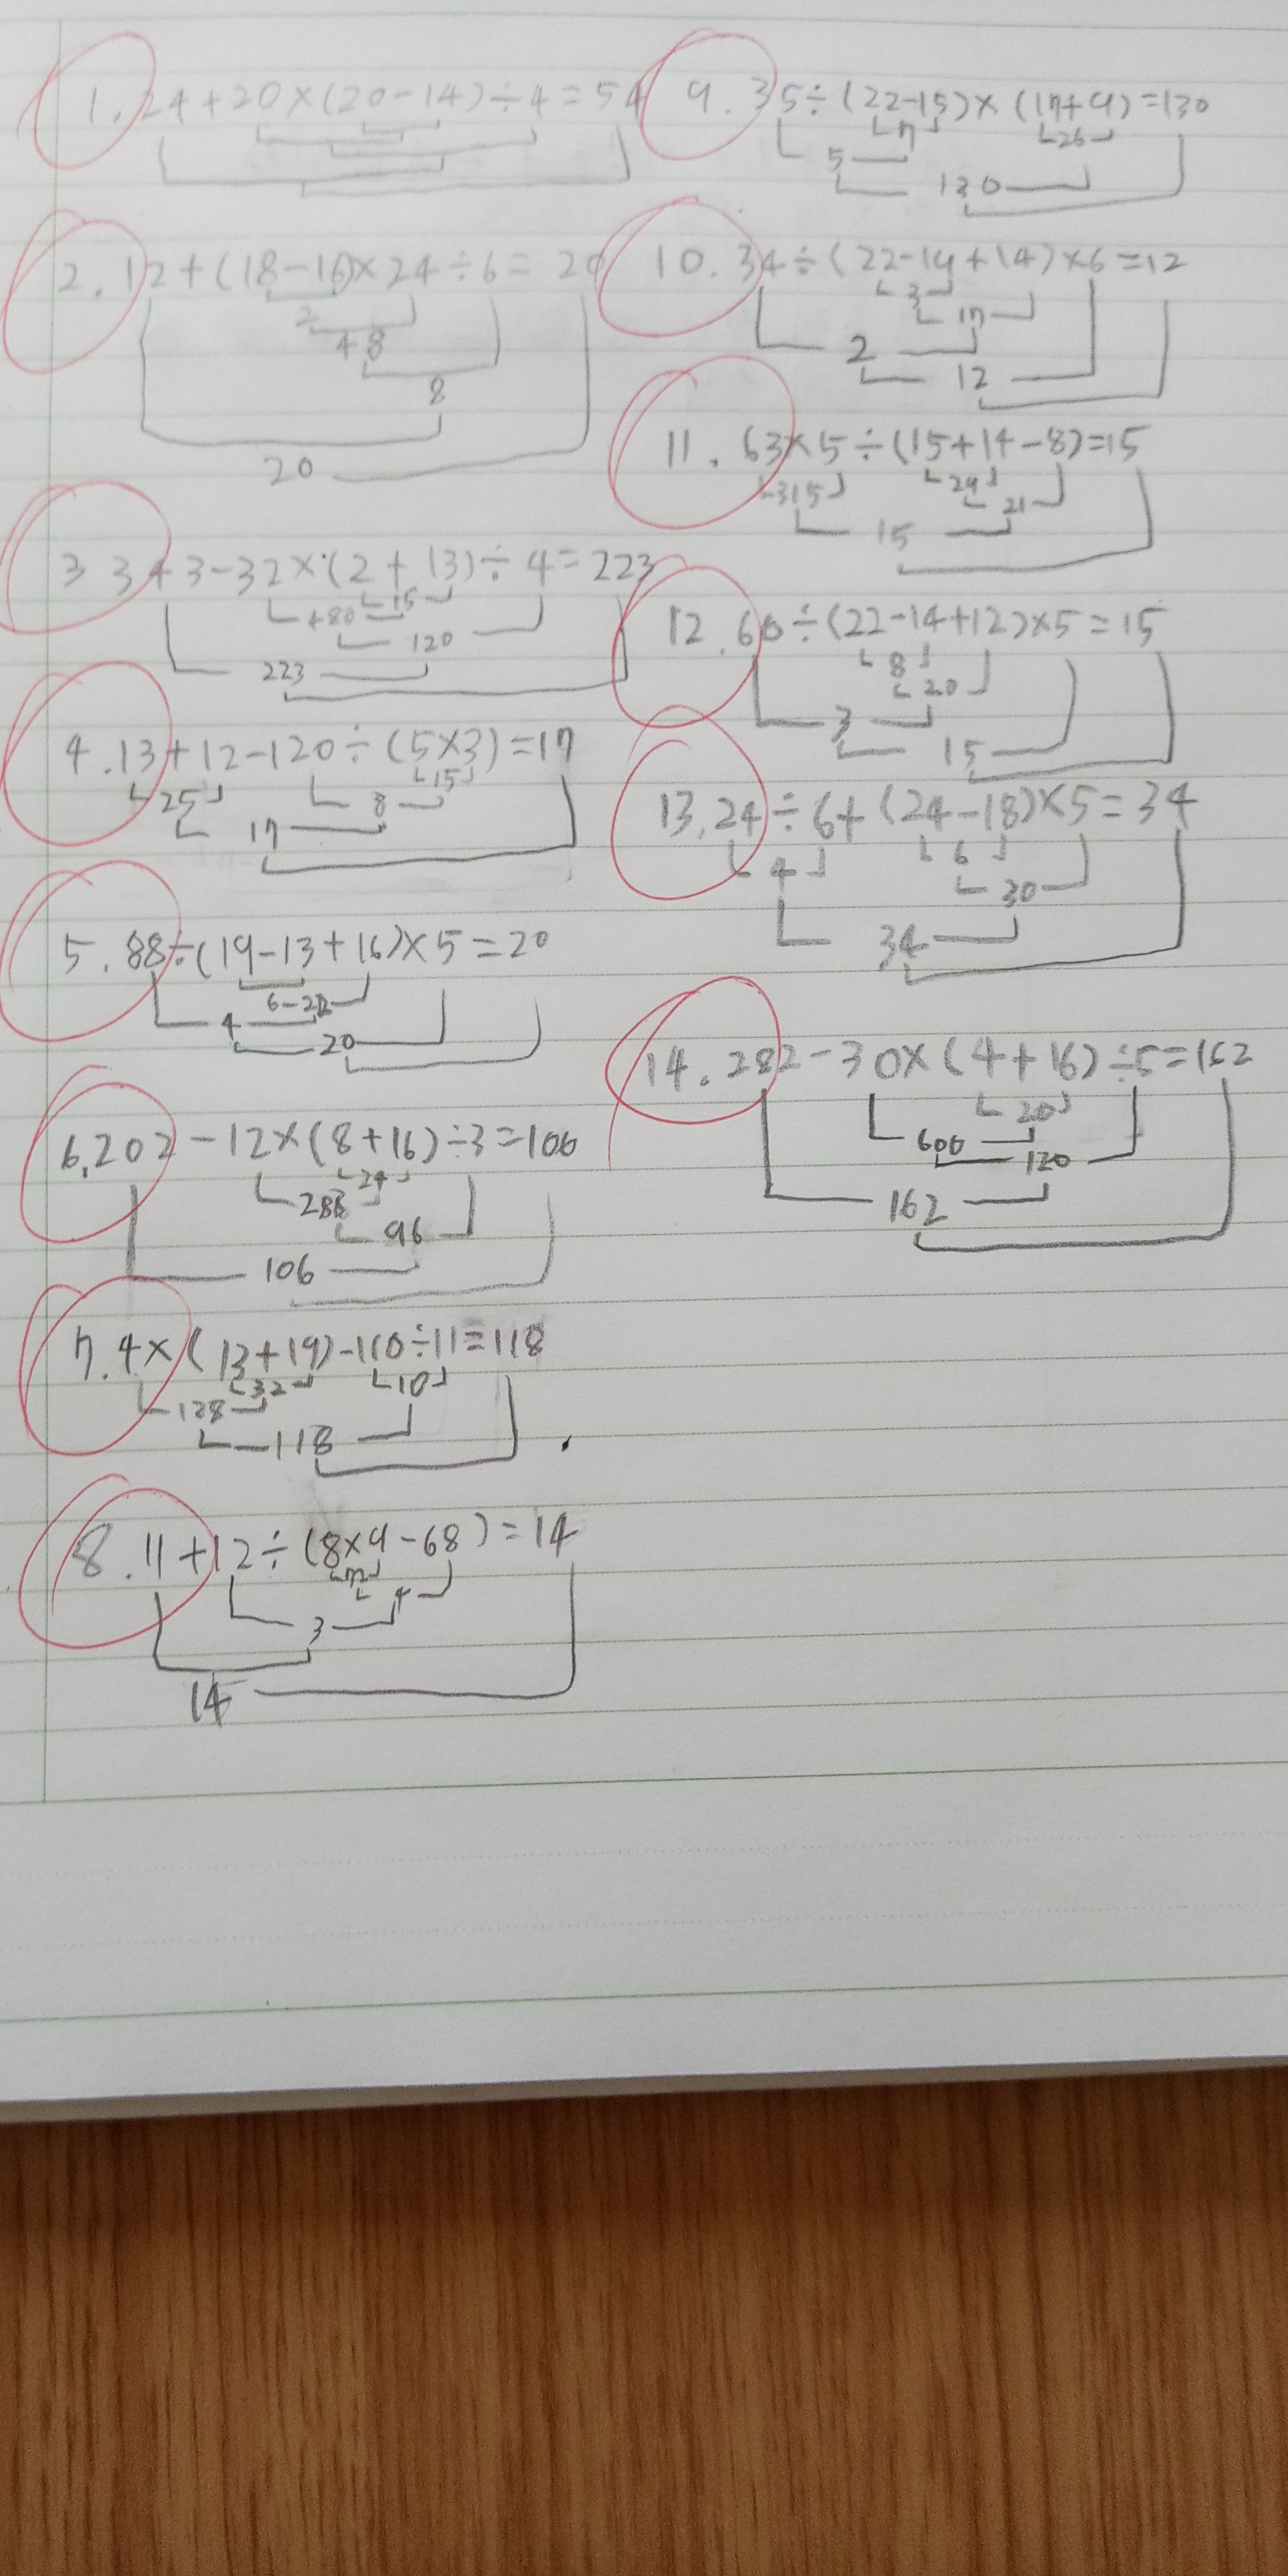 1. 24+20×(20-14)÷4=54
2. 12+(18-16)×24÷6=20
2
48
8
20
3 343-32×(2+13)÷4=223
480 15
120
223
4. 13+12-120÷(5×3)=17
25 8 15
17
5. 88÷(19-13+16)×5=20
6 22
4
20
6. 202-12×(8+16)÷3=106
24
288
96
106
7. 4×(13+19)-110÷11=118
32 10
128
118
8. 11+12÷(8×9-68)=14
72
4
3
14
9. 35÷(22-15)×(17+9)=130
7 26
5
130
10. 34÷(22-19+14)×6=12
3
17
2
12
11. 63×5÷(15+14-8)=15
315 29
21
15
12. 60÷(22-14+12)×5=15
8
20
3
15
13. 24÷6+(24-18)×5=34
4 6
30
34
14. 282-30×(4+16)÷5=162
20
600
120
162